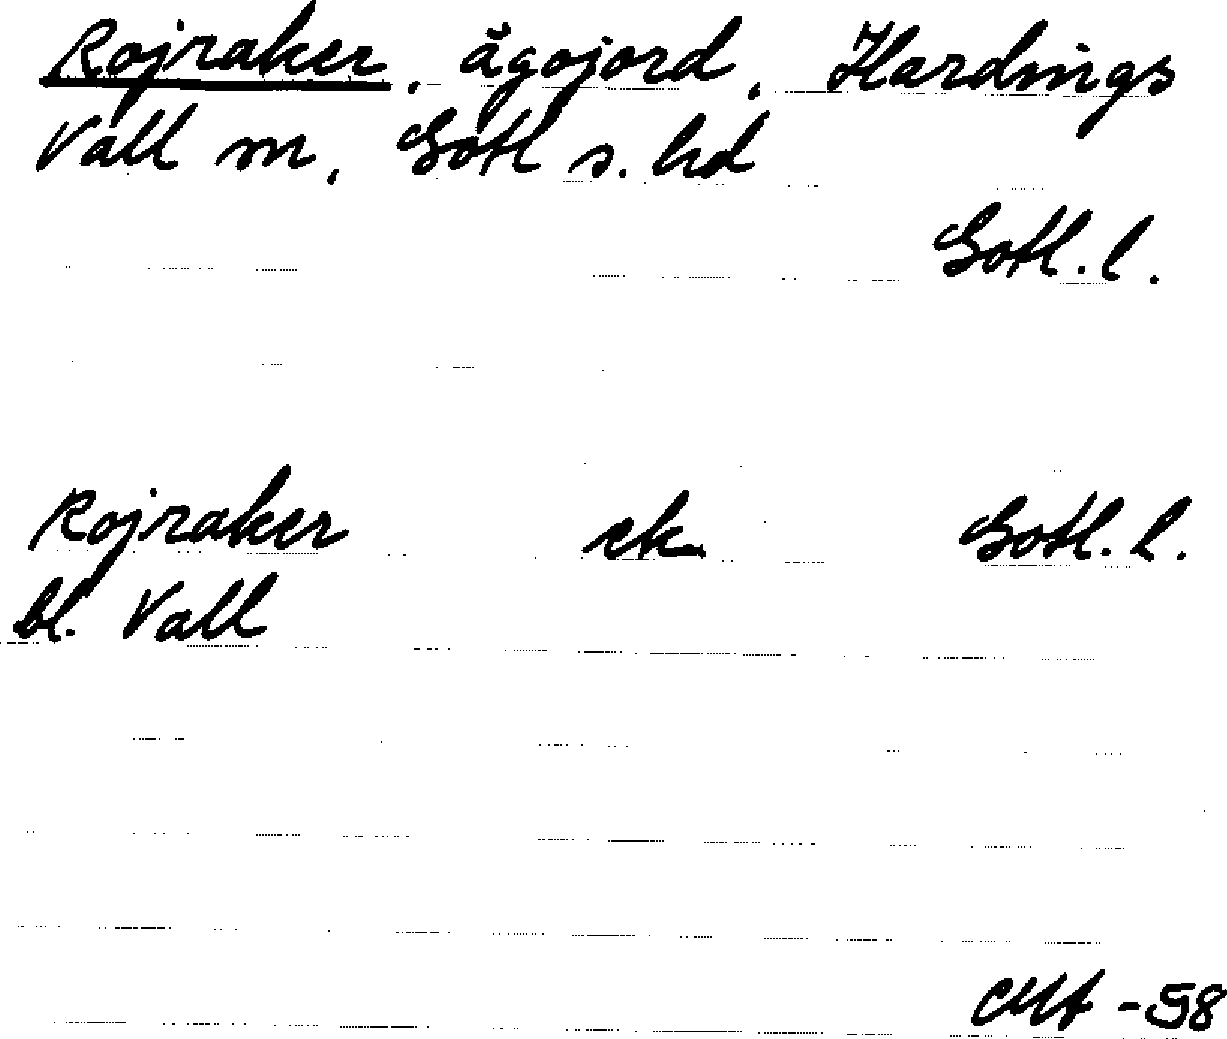 Rojraker, ägojord, Hardings
Vall sn, Gotl s. hd
Gotl. l.
Rojraker ek Gotl. l.
bl. Vall
-58